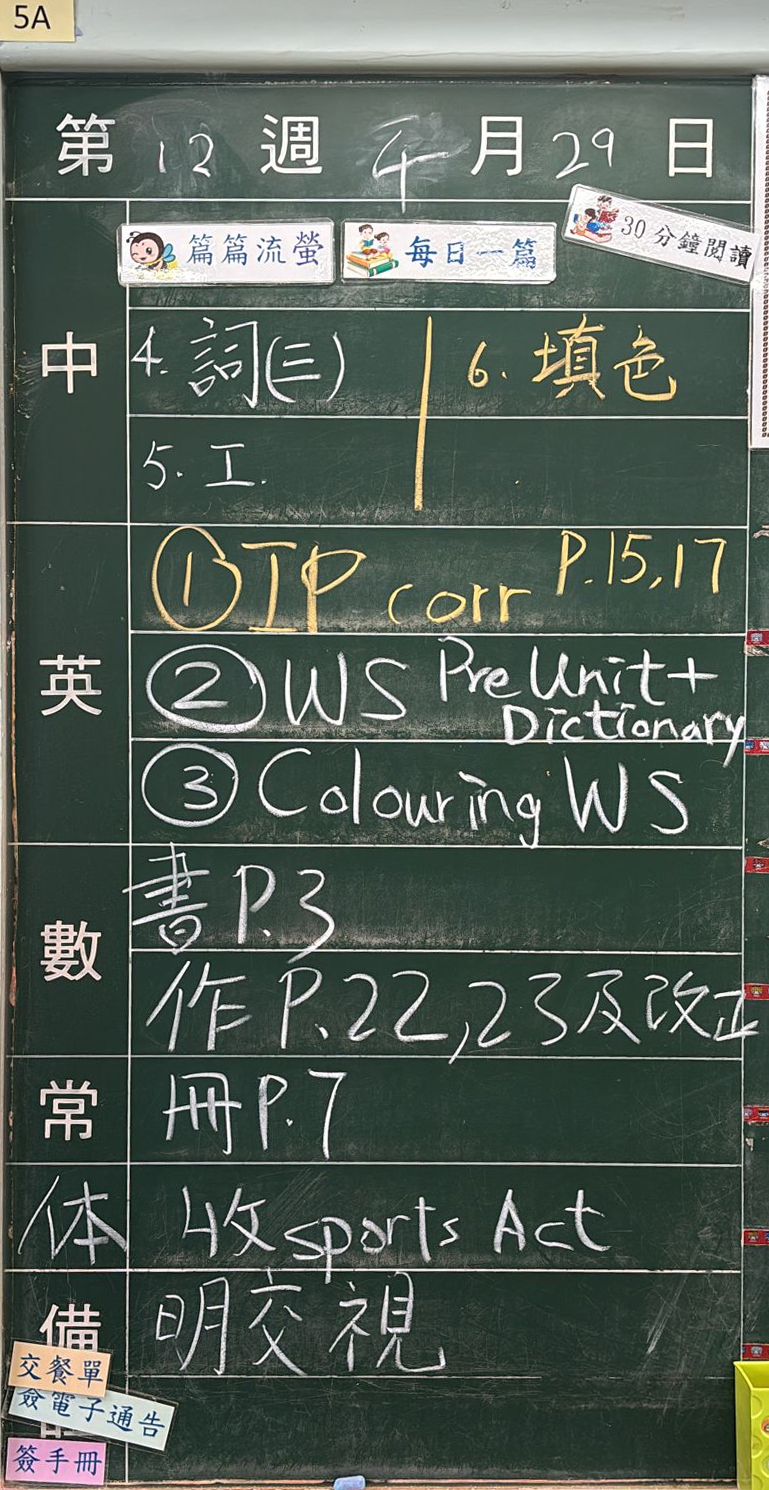 5A
第 12 週 4 月 29 日
篇篇流螢 每日一篇 30分鐘閱讀
中
4. 詞(三) 6. 填色
5. 工.
英
① IP corr P.15,17
② WS Pre Unit +
Dictionary
③ Colouring WS
數
書 P.3
作 P.22,23及改正
常 冊 P.7
体 收 sports Act
備 明交視
交餐單
簽電子通告
簽手冊